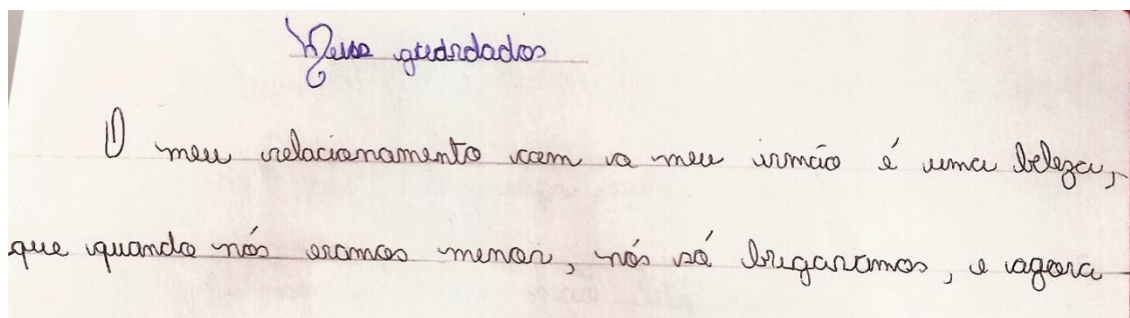 Meus guardados
O meu relacionamento com o meu irmão é uma beleza,
que quando nós eramos menor, nós só brigaramos, e agora